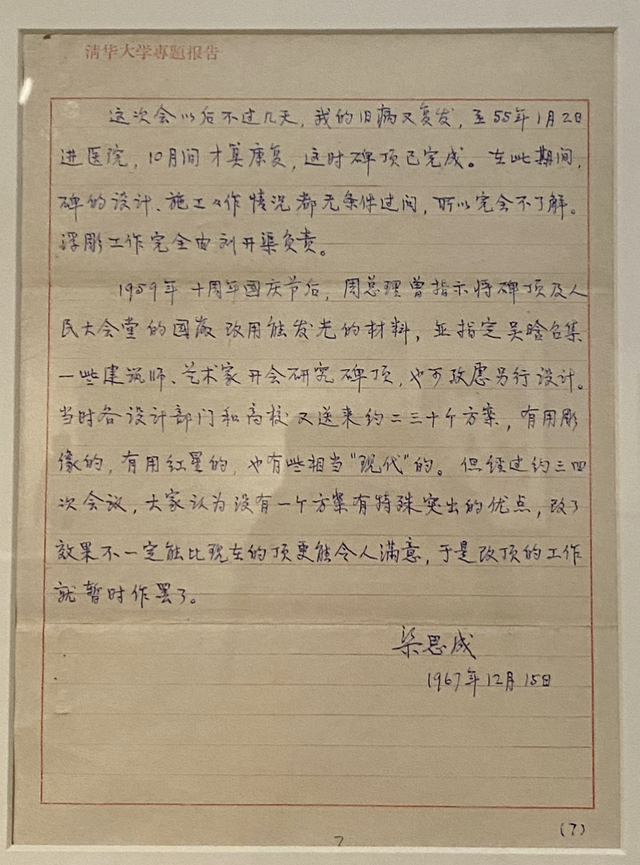 清华大学専題报告
这次会以后不过几天，我的旧病又复发，至55年1月2日
进医院，10月间才算康复，这时碑顶已完成。在此期间，
碑的设计、施工工作情况都无条件过问，所以完全不了解。
浮彫工作完全由刘开渠负责。
1959年十周年国庆节后，周总理曾指示将碑顶及人
民大会堂的国徽改用能发光的材料，並指定吴晗召集
一些建筑师、艺术家开会研究碑顶，也可攷虑另行设计。
当时各设计部门和高校又送来约二三十个方案，有用彫
像的，有用红星的，也有些相当"现代"的。但经过约三四
次会议，大家认为没有一个方案有特殊突出的优点，改了
效果不一定能比现在的顶更能令人满意，于是改顶的工作
就暂时作罢了。
梁思成
1967年12月15日
(7)
7